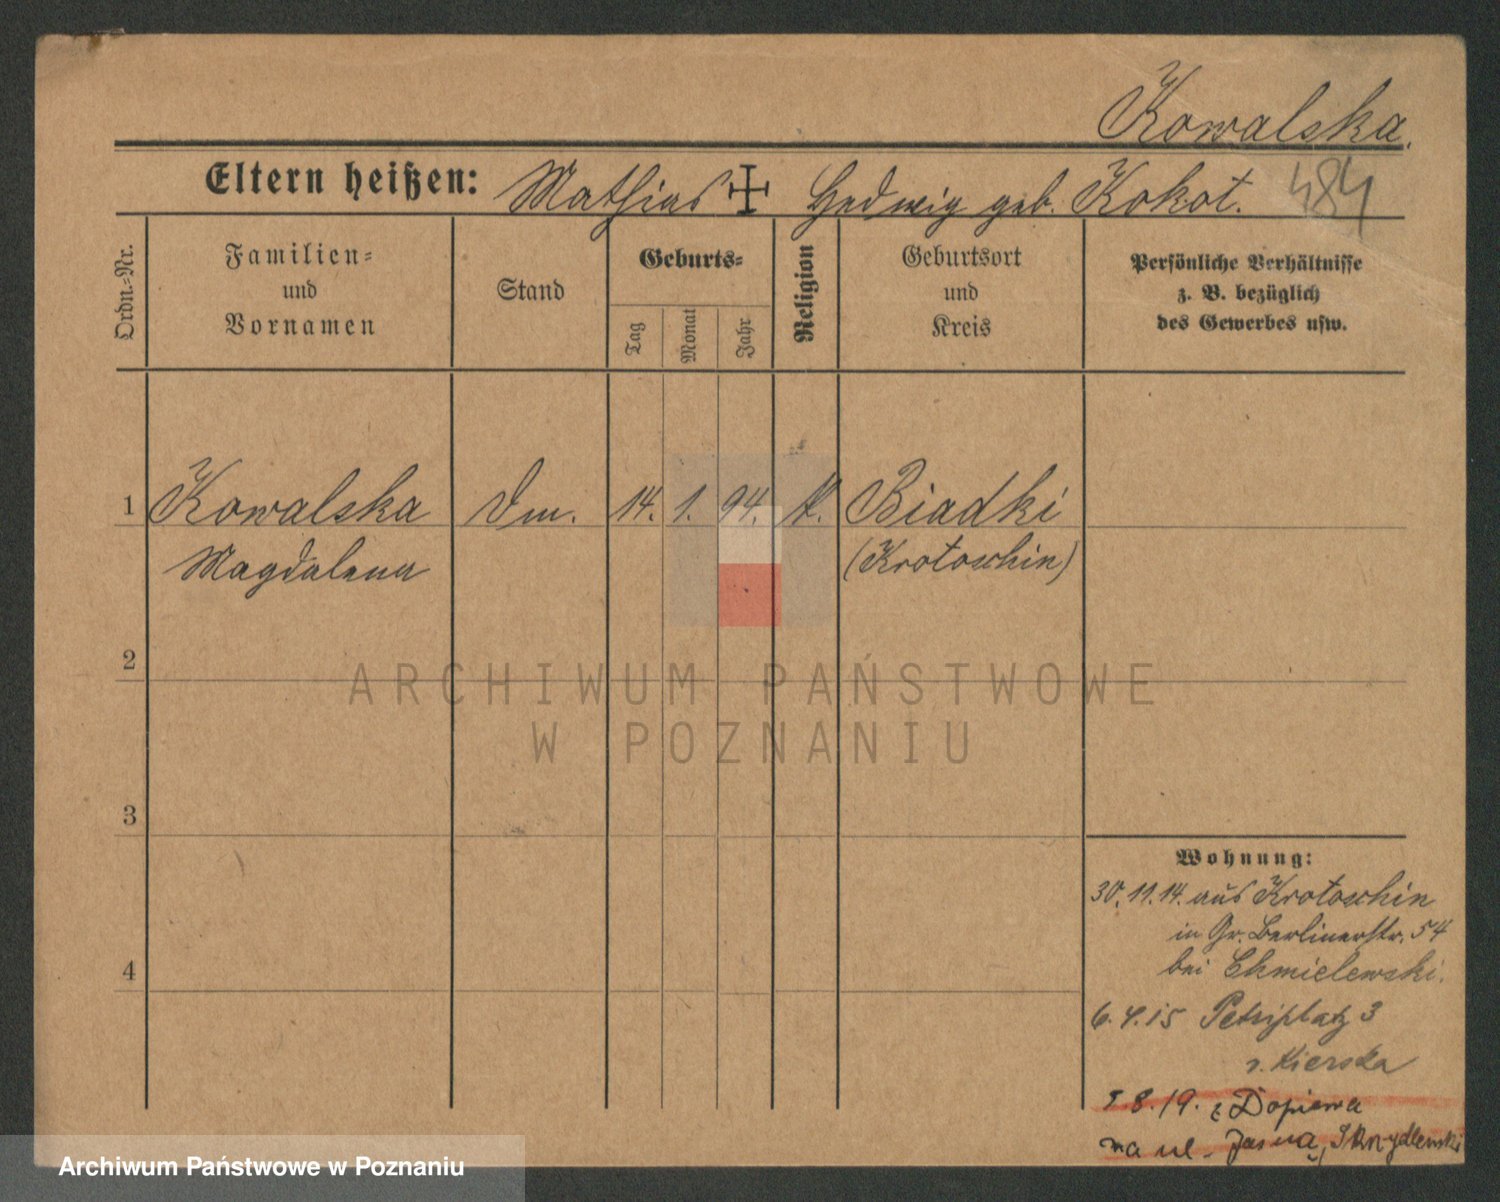 Kowalska.
Eltern heißen: Mathias Hedwig geb. Kokot. 484
Ordn.-Nr.
Familien-
und
Vornamen
Stand
Geburts-
Tag
Monat
Jahr
Religion
Geburtsort
und
Kreis
Persönliche Verhältnisse
z. B. bezüglich
des Gewerbes usw.
1 Kowalska Dm. 14. 1. 94. K. Biadki
Magdalena (Krotoschin)
2
ARCHIWUM PAŃSTWOWE
W POZNANIU
3
Wohnung:
30.11.14. aus Krotoschin
in Gr. Berlinerstr. 54
4
bei Chmielewski.
6.4.15 Petriplatz 3
Kierska
8.19. z Dopiewa
na ul. Jasna, Skrzydlewski
Archiwum Państwowe w Poznaniu